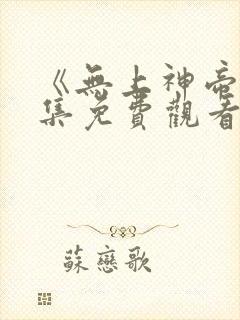 《無上神帝
集免費觀看
蘇戀歌